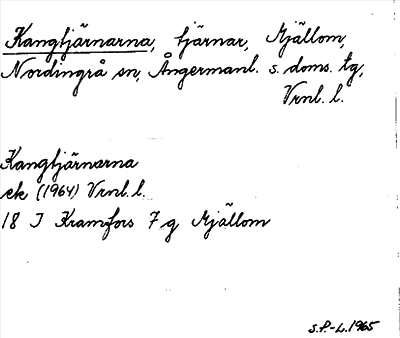 Kangtjärnarna, tjärnar, Mjällom,
Nordingrå sn, Ångermanl. s. doms. tg,
Vrnl. l.
Kangtjärnarna
ek (1964) Vrnl. l.
18 J Kramfors 7 g Mjällom
S.P.-L. 1965